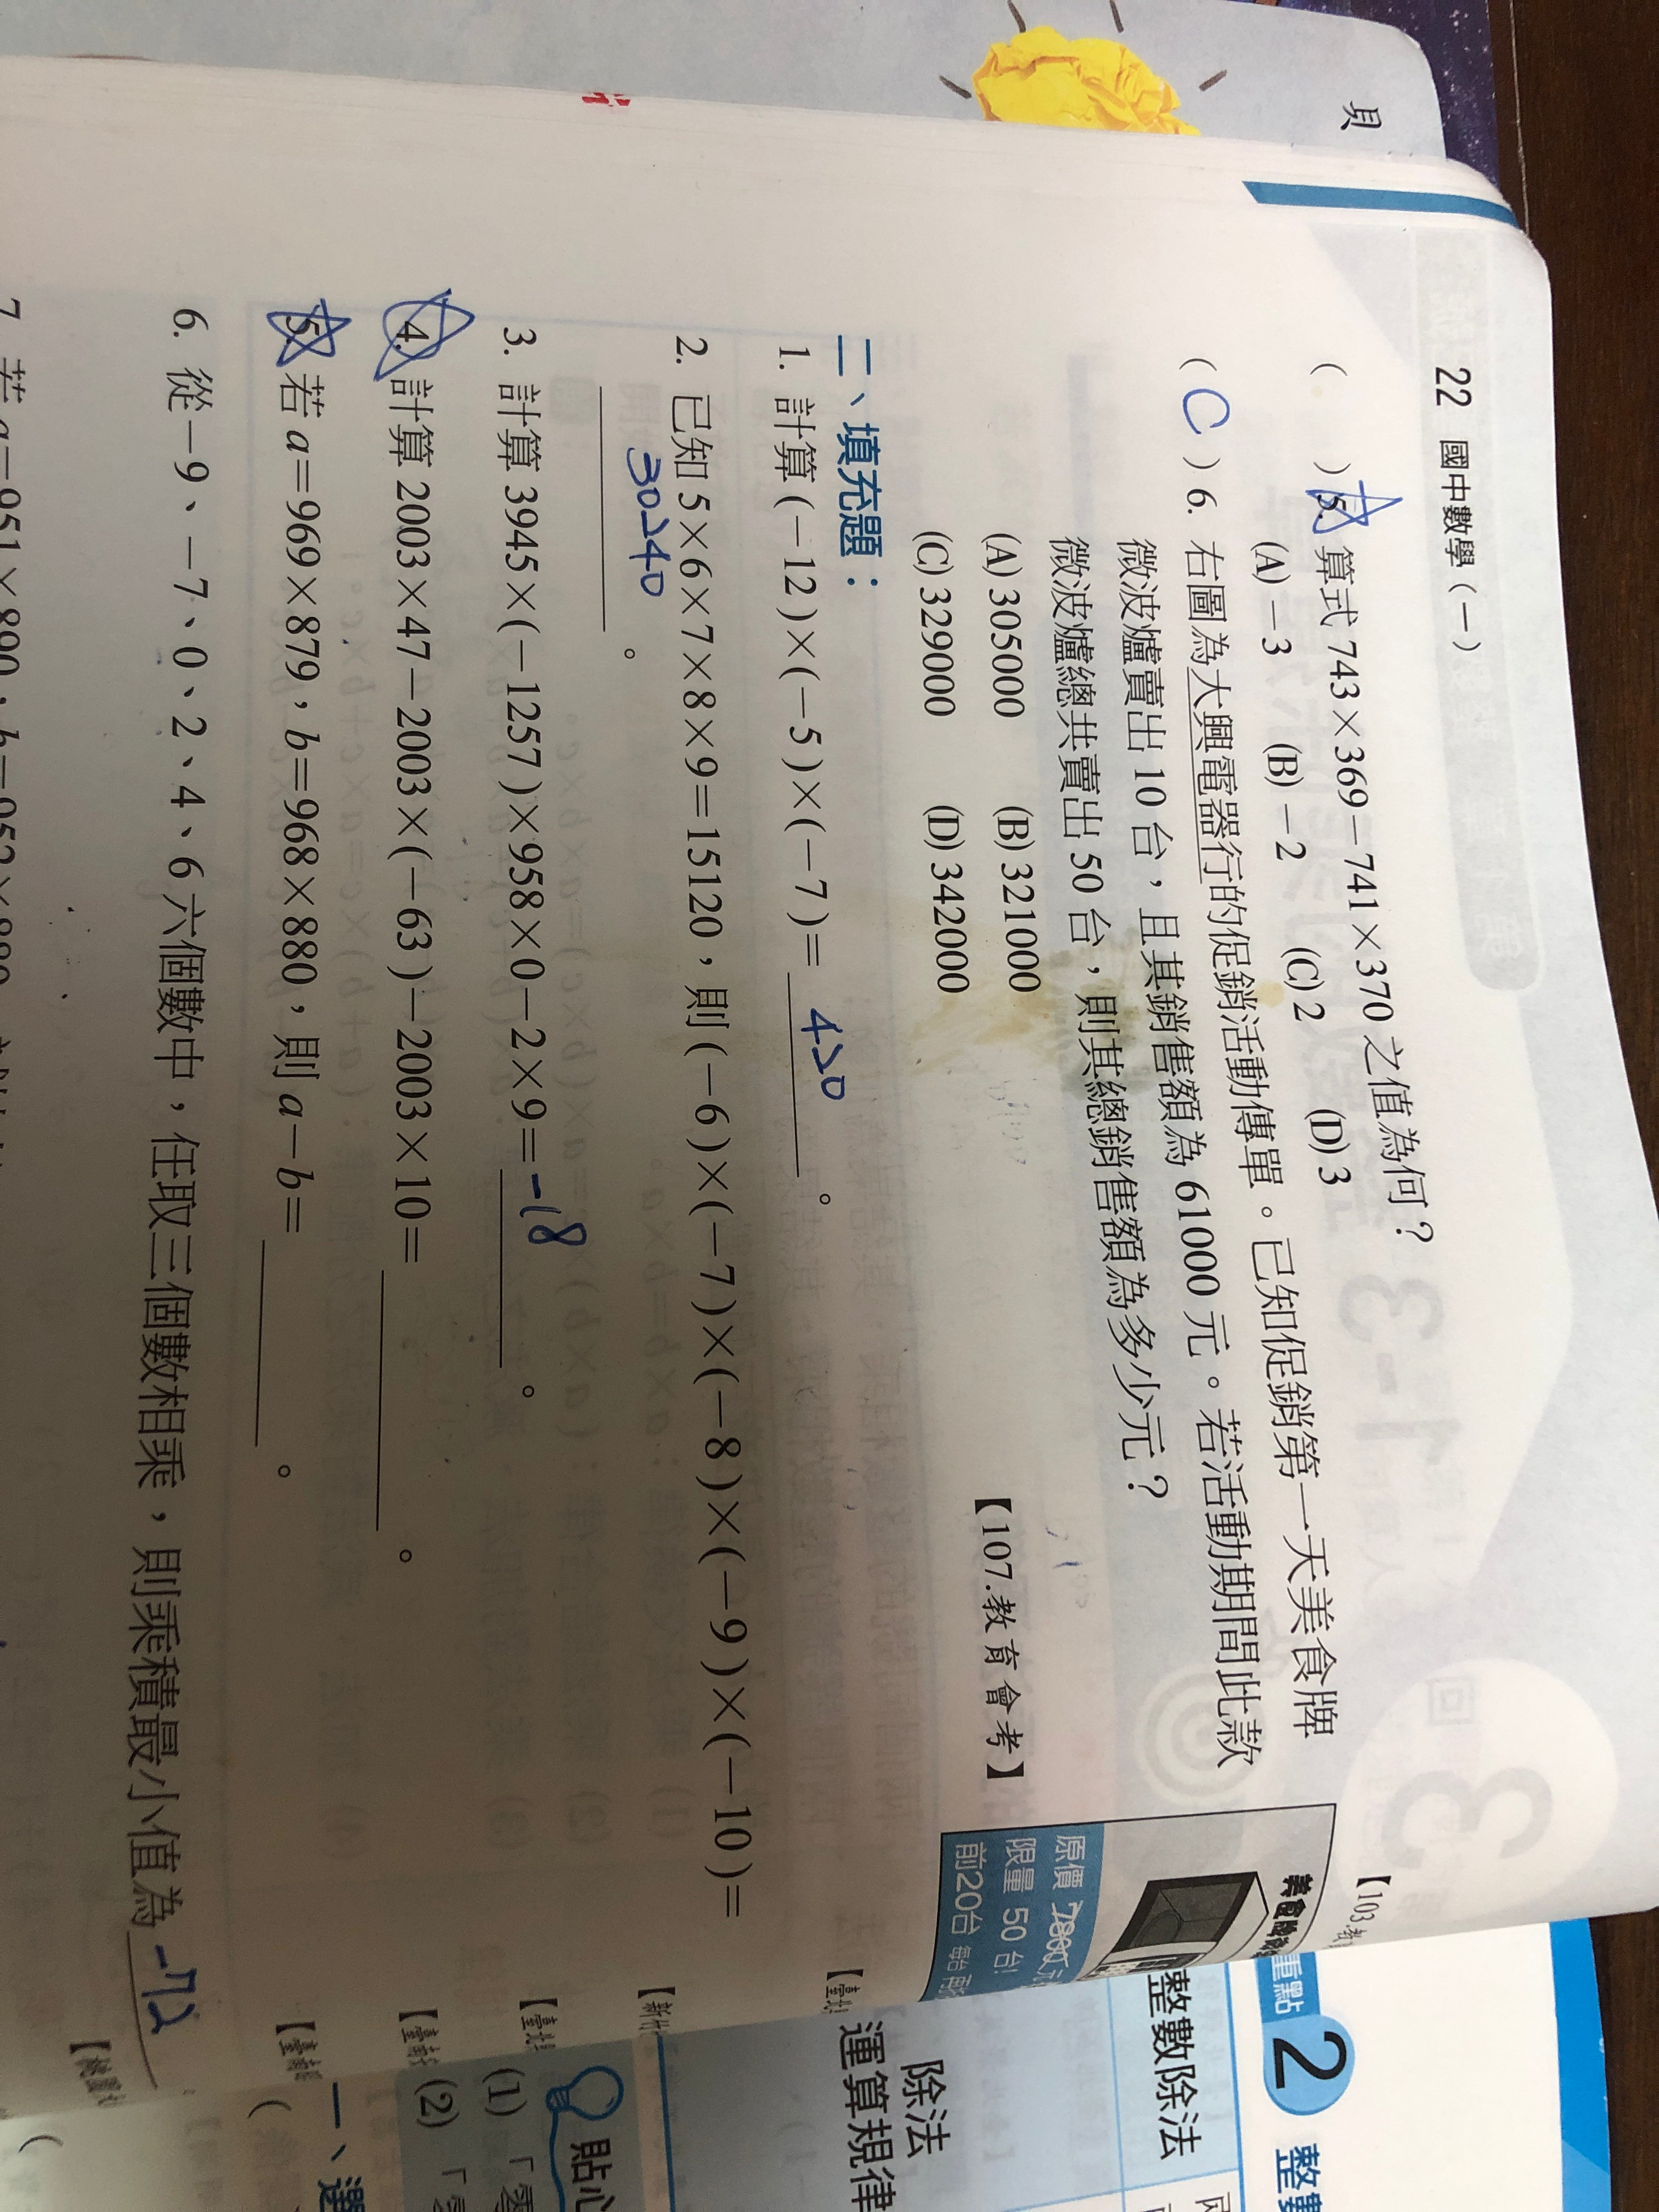 頁
22 國中數學(一)
( ) 5. 算式 743×369-741×370 之值為何?
【103.教
(A)-3 (B)-2 (C) 2 (D) 3
( C ) 6. 右圖為大興電器行的促銷活動傳單。已知促銷第一天美食牌
微波爐賣出 10 台,且其銷售額為 61000 元。若活動期間此款
微波爐總共賣出 50 台,則其總銷售額為多少元?
(A) 305000 (B) 321000
(C) 329000 (D) 342000
【107.教育會考】
美食牌
原價 7800元
限量 50 台!
前20台
二、填充題:
1. 計算(-12)×(-5)×(-7)= 420 。
2. 已知 5×6×7×8×9=15120,則(-6)×(-7)×(-8)×(-9)×(-10)=
30240 。
3. 計算 3945×(-1257)×958×0-2×9= -18 。
4. 計算 2003×47-2003×(-63)-2003×10= 。
5. 若 a=969×879,b=968×880,則 a-b= 。
6. 從-9、-7、0、2、4、6 六個數中,任取三個數相乘,則乘積最小值為 -72
7. 若 a=951×890,b=952×889
重點 2 整數
整數除法
除法
運算規律
貼心
(1)「零
(2)「
一、選
(
(